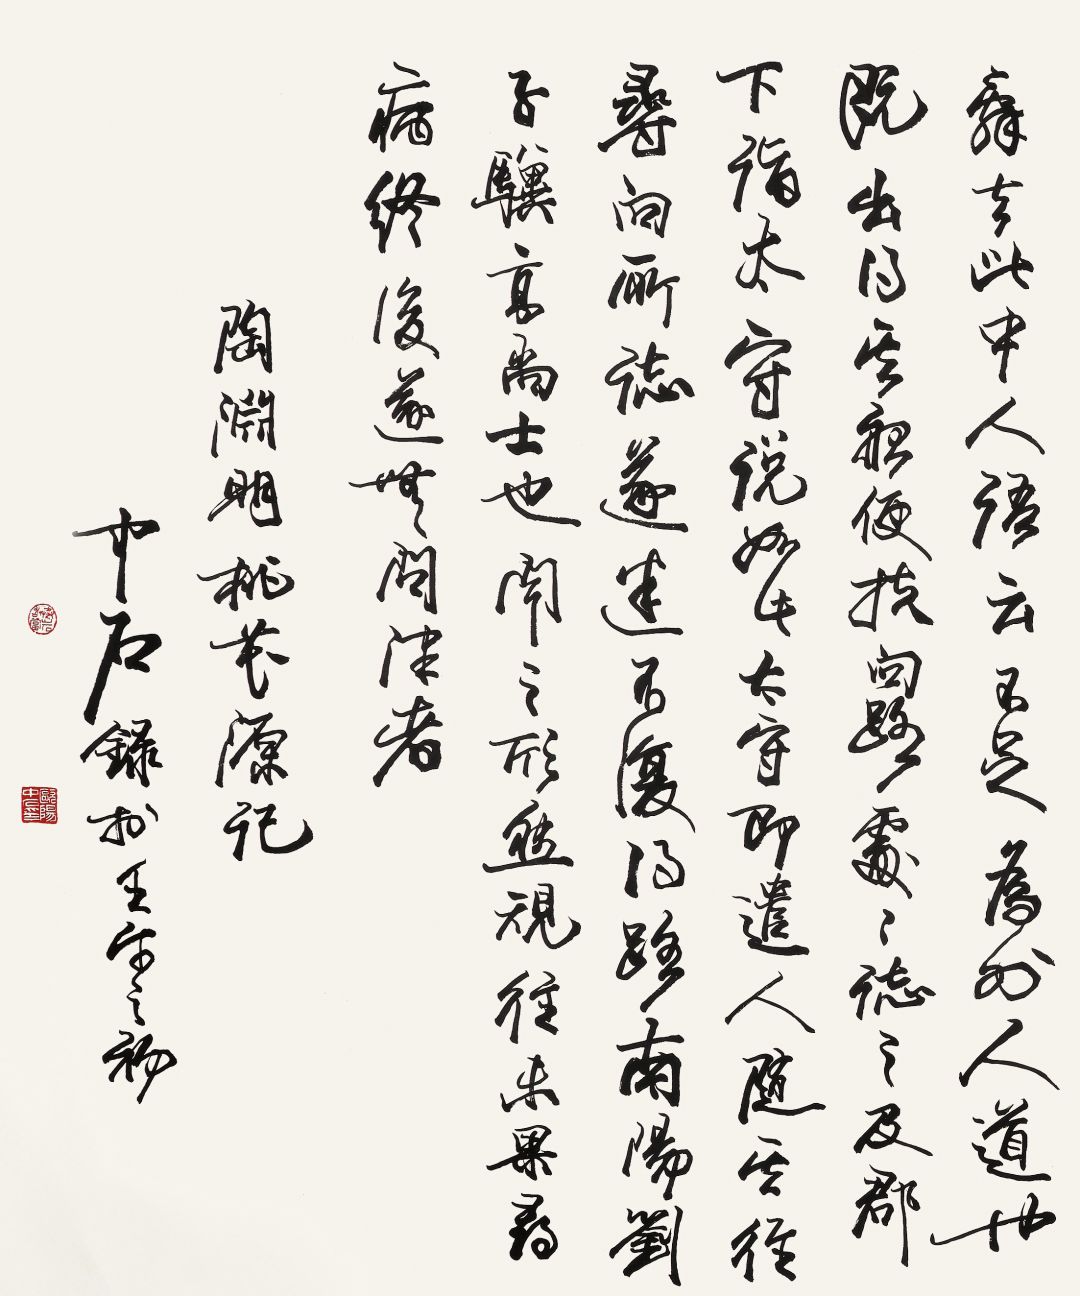 辭去此中人語云不足為外人道也
既出得其船便扶向路處〻誌之及郡
下詣太守說如此太守即遣人隨其往
尋向所誌遂迷不復得路南陽劉
子驥高尚士也聞之欣然規往未果尋
病終後遂無問津者
陶淵明桃花源記
中石錄於壬午之初
歐陽中石